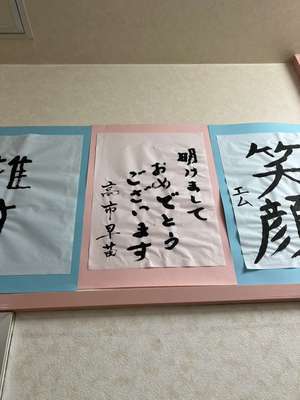 笑顔
エム
明けまして
おめでとう
ございます
高市早苗